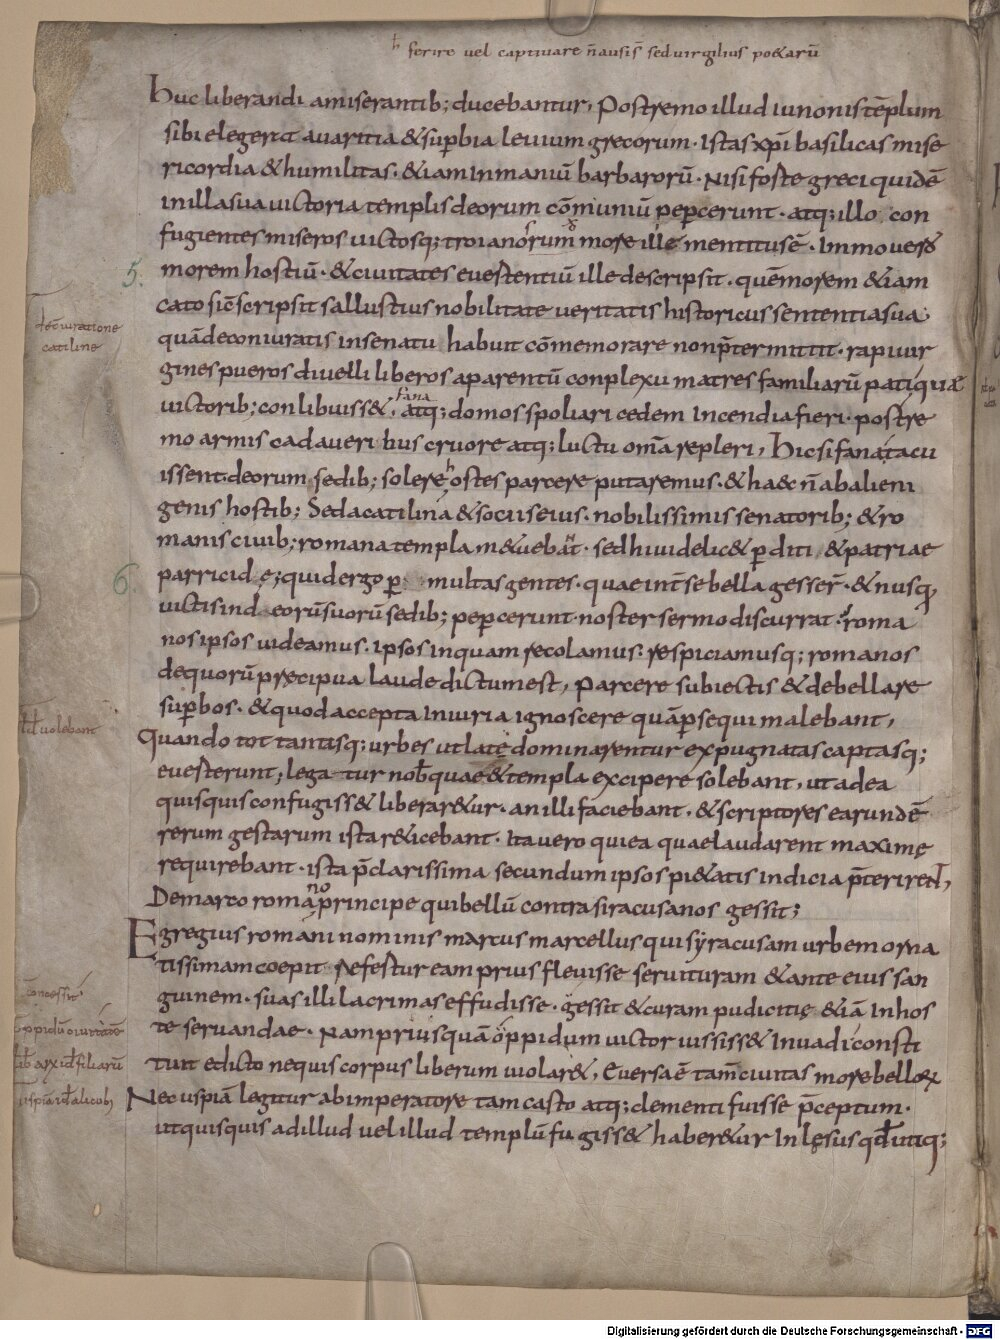 h ferire uel captiuare n̄ ausis̄ sed uirgilius po&arū
huc liberandi amiserantib; ducebantur, Postremo illud iunonis tēplum
sibi elegerat auaritia & sup̄bia leuium grecorum · Istas xp̄i basilicas mise
ricordia & humilitas · & iam inmaniū barbarorū · Nisi forte greci quidē
in illa sua uictoria templis deorum cōmuniū pep̄cerunt · atq; illo con
fugientes miseros uictosq; troianorum more ille mentitus ē · Immo uero
5. morem hostiū · & ciuitates euertentiū ille descripsit · quē morem & iam
cato sic̄ scripsit sallustius nobilitate ueritatis historicus sententia sua
quā de coniuratis in senatu habuit cōmemorare non p̄termittit · rapi uir
gines pueros diuelli liberos a parentū conplexu matres familiarū pati quae
uictorib; conlibuiss& · fana
atq; domos spoliari cedem incendia fieri · postre
mo armis cadaueribus cruore atq; luctu om̄a repleri, hic si fana tacu
issent · deorum sedib; solere hostes parcere putaremus · & haec n̄ ab alieni
genis hostib; Sed a catilina & sociis eius · nobilissimis senatorib; & ro
manis ciuib; romana templa m&uebant · sed hi uidelic& p̄diti & patriae
6. parricid e; quid ergo p̄ multas gentes · quae int̄ se bella gesser̄ · & nusq̄
uictis in d eorū suorū sedib; pep̄cerunt · noster sermo discurrat · roma
nos ipsos uideamus · ipsos inquam recolamus · respiciamusq; romanos
de quorū precipua laude dictum est, Parcere subiectis & debellare
sup̄bos · & quod accepta iniuria ignoscere quā p̄sequi malebant,
Quando tot tantasq; urbes ut late dominarentur expugnatas captasq;
euerterunt; legatur nob̄ quae & templa excipere solebant, ut ad ea
quisquis confugiss& liberar&ur · an illi faciebant · & scriptores earundē
rerum gestarum ista r&icebant · Ita uero qui ea quae laudarent maxime
requirebant · ista p̄clarissima secundum ipsos pi&atis indicia p̄terirent,
De marco romano principe qui bellū contra siracusanos gessit;
Egregius romani nominis marcus marcellus qui syracusam urbem orna
tissimam coepit · Refestur eam prius fleuisse seruituram & ante eius san
guinem · suas illi lacrimas effudisse · gessit & curam pudicitie & iā in hos
te seruandae · Nam priusquā oppidum uictor iussiss& inuadi consti
tuit edicto ne quis corpus liberum uiolar&, Euersa ē tam̄ ciuitas more bellorum
Nec uspiā legitur ab imperatore tam casto atq; clementi fuisse p̄ceptum ·
ut quisquis ad illud uel illud templū fugiss& haber&ur inlesus qd̄ utiq;
decūratione
catiline
ł uolebant
concessit
oppidū ciuitatē
Digitalisierung gefördert durch die Deutsche Forschungsgemeinschaft - DFG